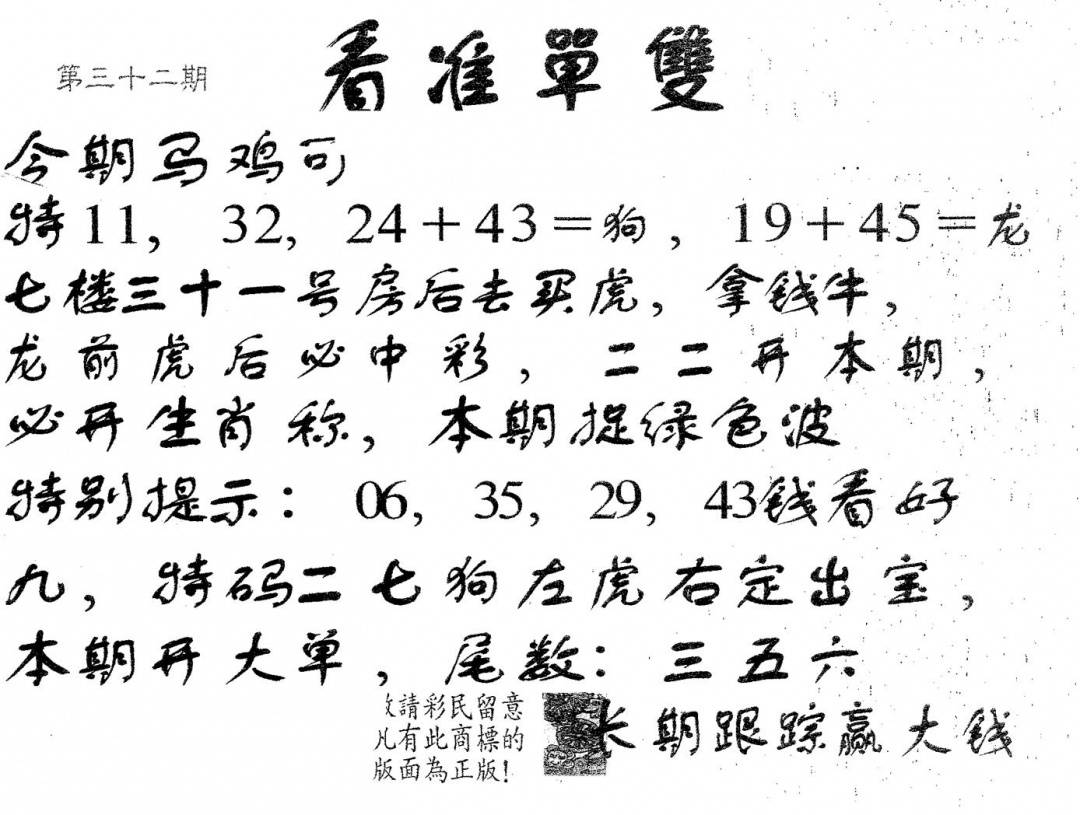 第三十二期
看准單雙
今期马鸡可
特11, 32, 24+43=狗, 19+45=龙
七楼三十一号房后去买虎, 拿钱牛,
龙前虎后必中彩, 二二开本期,
必开生肖称, 本期捉绿色波
特别提示: 06, 35, 29, 43钱看好
九, 特码二七狗左虎右定出宝,
本期开大单, 尾数: 三五六
請彩民留意
凡有此商標的
版面為正版!
长期跟踪赢大钱